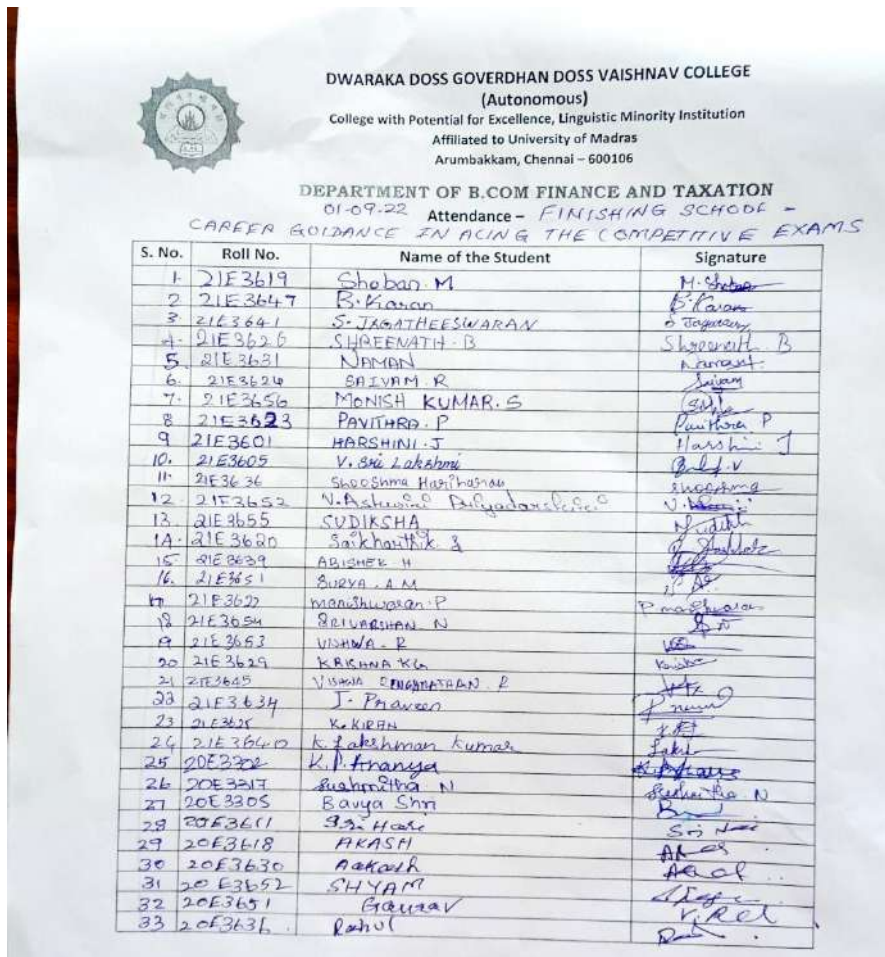 DWARAKA DOSS GOVERDHAN DOSS VAISHNAV COLLEGE
(Autonomous)
College with Potential for Excellence, Linguistic Minority Institution
Affiliated to University of Madras
Arumbakkam, Chennai – 600106
DEPARTMENT OF B.COM FINANCE AND TAXATION
01-09-22 Attendance – FINISHING SCHOOL -
CAREER GUIDANCE IN ACING THE COMPETITIVE EXAMS
S. No. Roll No. Name of the Student Signature
1. 21E3619 Shoban. M M. Shoban
2 21E3647 B. Karan B. Karan
3. 21E3641 S. JAGATHEESWARAN
4. 21E3626 SHREENATH. B Shreenath. B
5. 21E3631 NAMAN
6. 21E3624 SAIVAM. R Saivam
7. 21E3656 MONISH KUMAR. S
8 21E3623 PAVITHRA. P Pavithra P
9 21E3601 HARSHINI. J Harshini J
10. 21E3605 V. Sri Lakshmi
11. 21E3636 Shooshma Hariharan Shooshma
12. 21E3652 V. Ashwini Priyadarshini
13. 21E3655 SUDIKSHA
14. 21E3620 Saikharthik. S
15. 21E3639 ABISHEK H
16. 21E3651 SURYA. A.M
17. 21E3622 Manishwaran. P P. manishwaran
18 21E3654 SRIVARSHAN N
19 21E3653 VISHWA. R
20 21E3629 KRISHNA KG Krishna
21 21E3645 VISHWA R
22 21E3634 J. Praveen
23 21E3625 K. KIRAN
24 21E3640 K. Lakshman Kumar
25 20E3302 K.P. Ananya
26 20E3317 Sushmitha. N Sushmitha. N
27 20E3305 Bavya Shri
28 20E3611 Sri Hari Sri Hari
29 20E3618 AKASH
30 20E3630 Aakash
31 20E3652 SHYAM
32 20E3651 Gaurav
33 20E3636. Rahul